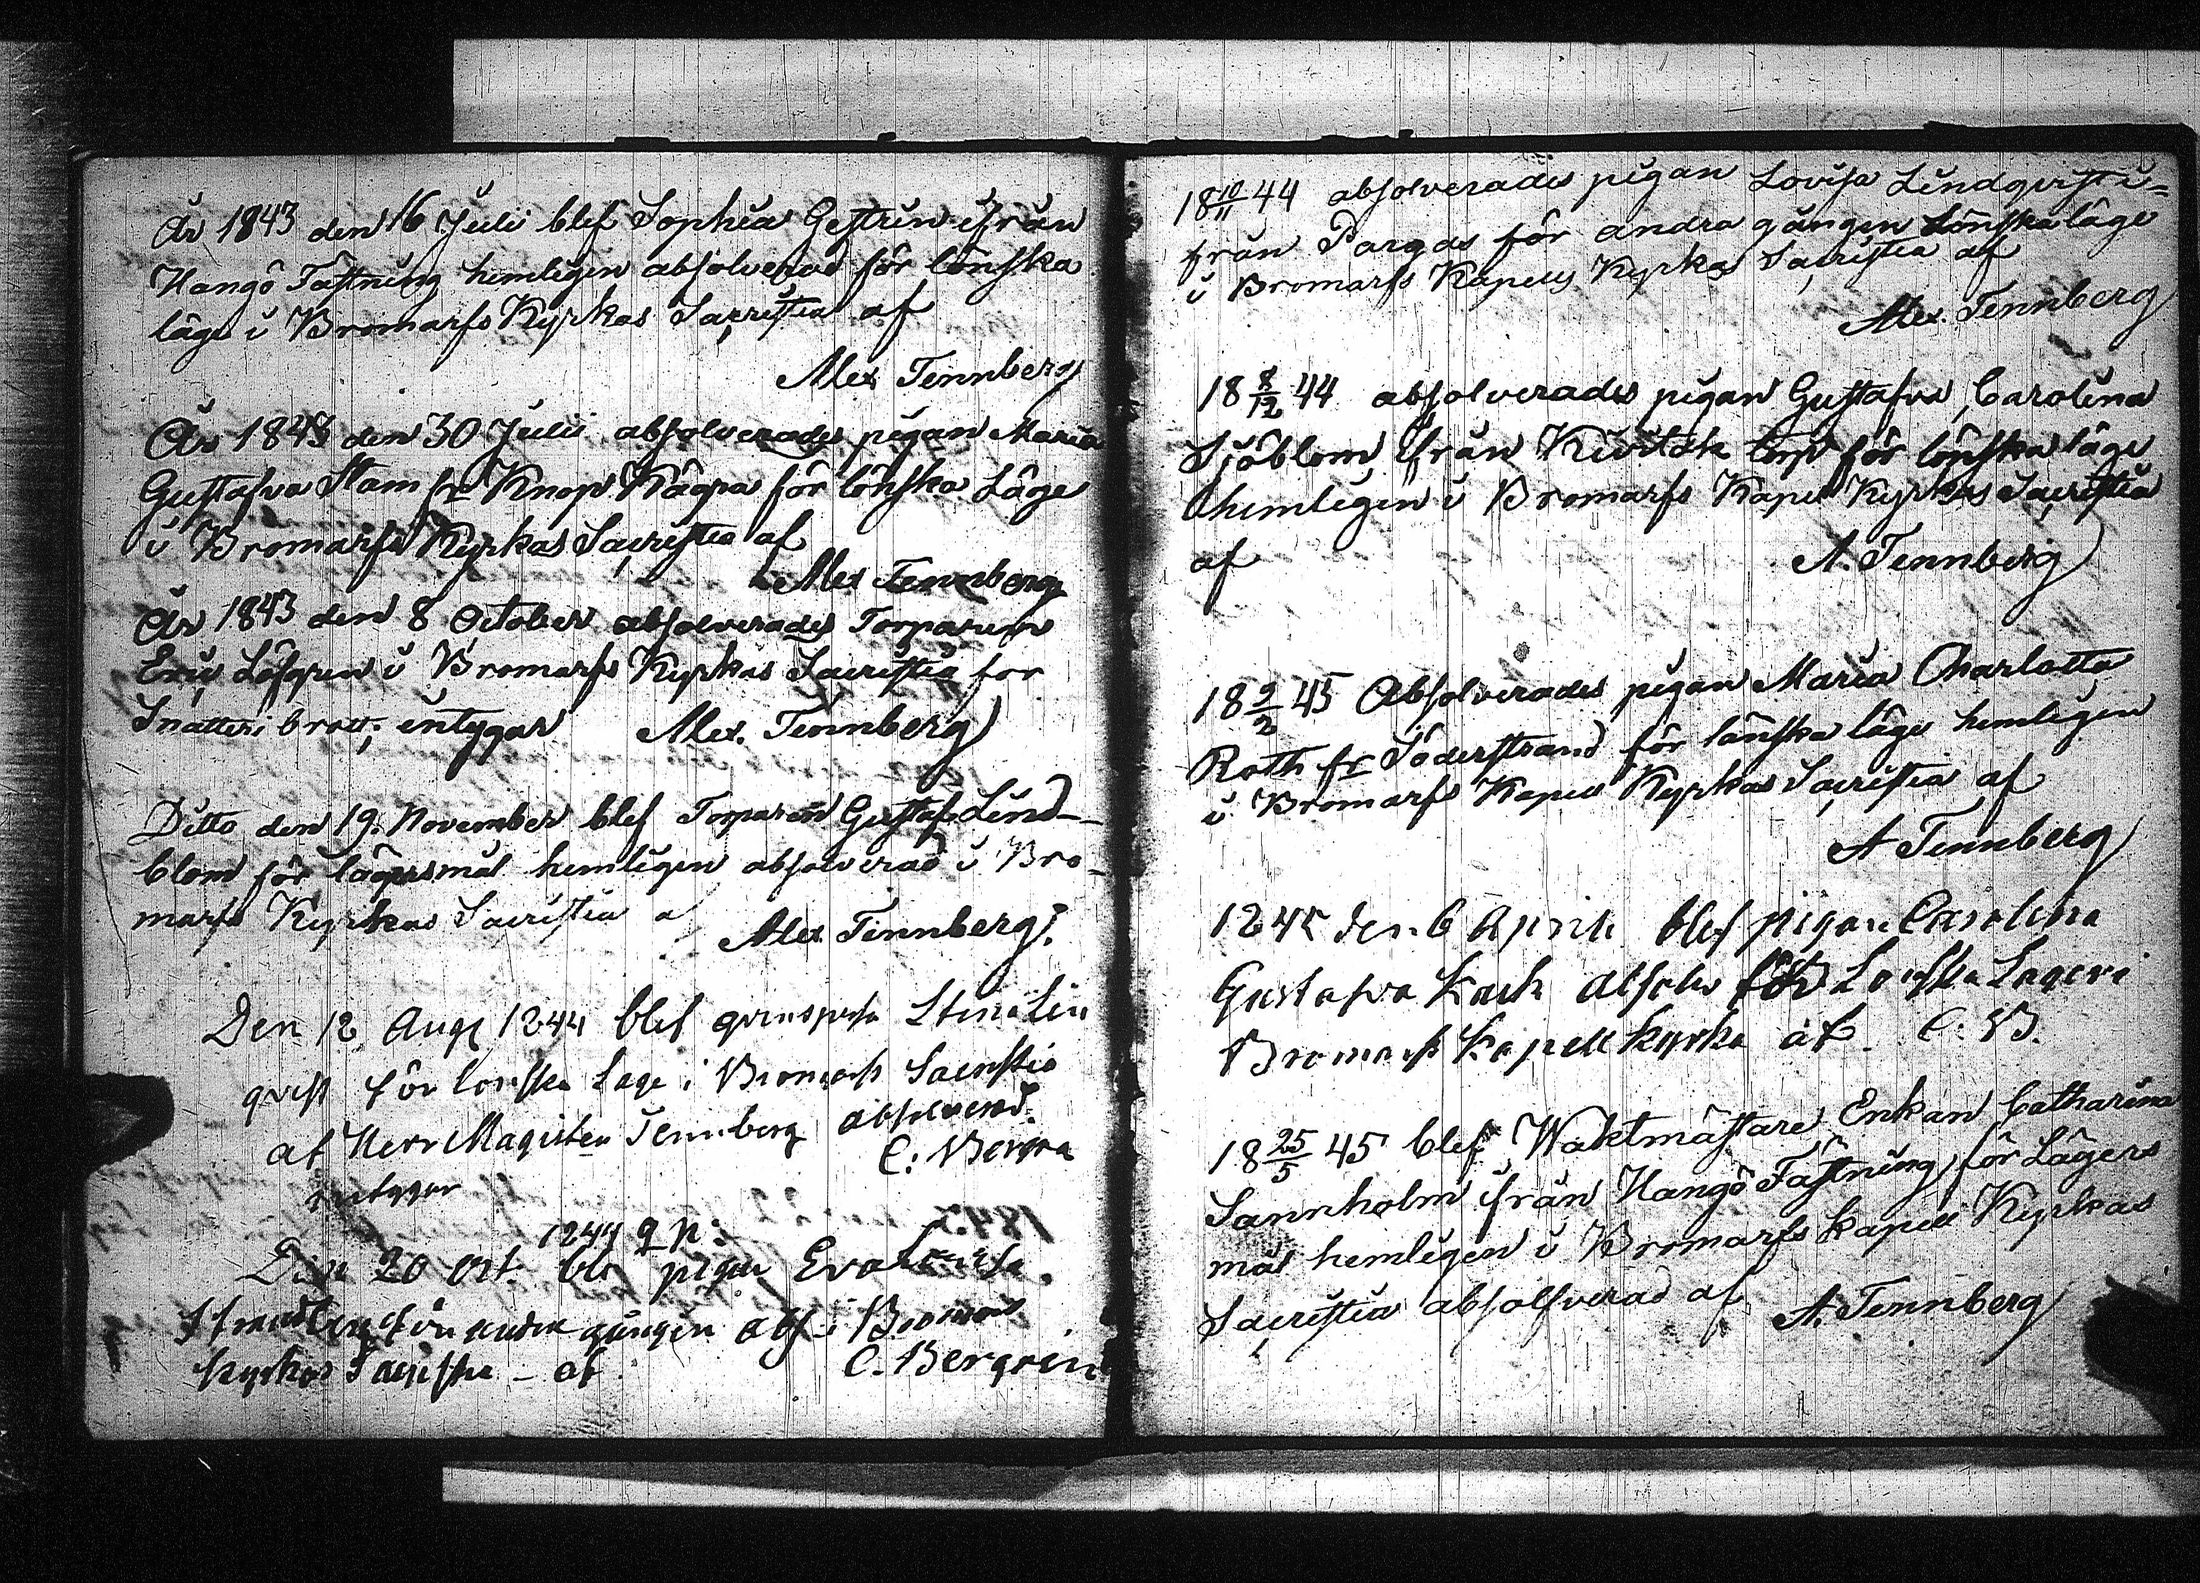 År 1843 den 16 Julii blef Sophia Gestrin ifrån
Hangö Fästning hemligen absolverad för lönska
läge i Bromarfs Kyrkas Sacristia af
Alex Tennberg
År 1843 den 30 Julii absolverades pigan Maria
Gustafva Stam fr Knop Kägra för lönska Läge
i Bromarfs Kyrkas Sacristia af
Alex Tennberg
År 1843 den 8 October absolverades Torparen
Eric Löfgren i Bromarfs Kyrkas Sacristia for
Snatteri brott; intygar Alex. Tennberg
Ditto den 19. November blef Torparen Gustaf Lind-
blom för lägersmål hemligen absolverad i Bro-
marfs Kyrkas Sacristia a
Alex Tennberg.
Den 18 Aug 1844 blef qvinsperso Stina Lin
qvist för lönska Läge i Bromarfs Sacristia
af Herr Magister Tennberg absolverad.
intygar C: Bergra
1844 g n:
Den 20 Oct. ble pigan Eva Lovisa
Strandberg för andra gången abs i Bromar
kyrkas Sacristia - af C. Bergren
18 10/11 44 absolverades pigan Lovisa Lindqvist i=
från Pargas för andra gången lönska läge
i Bromarfs Kapells Kyrkas Sacristia af
Alex. Tennberg
18 8/12 44 absolverades pigan Gustafva Carolina
Sjöblom ifrån torp för lönska läge
hemligen i Bromarfs Kapell Kyrkas Sacristia
af A. Tennberg
18 9/2 45 Absolverades pigan Maria Charlotta
Roth fr Söderstrand för lönska läge hemligen
i Bromarfs Kapell Kyrkas Sacristia af
A Tennberg
1845 den 6 April blef pigan Carolina
Gustafva absolv för Lönska Lager i
Bromarfs Kapell Kyrka af C. B.
18 25/5 45 blef Waktmästare Enkan Catharina
Sannholm ifrån Hangö Fästning för Lägers
mål hemligen i Bromarfs kapell Kyrkas
Sacristia absolfverad af A. Tennberg